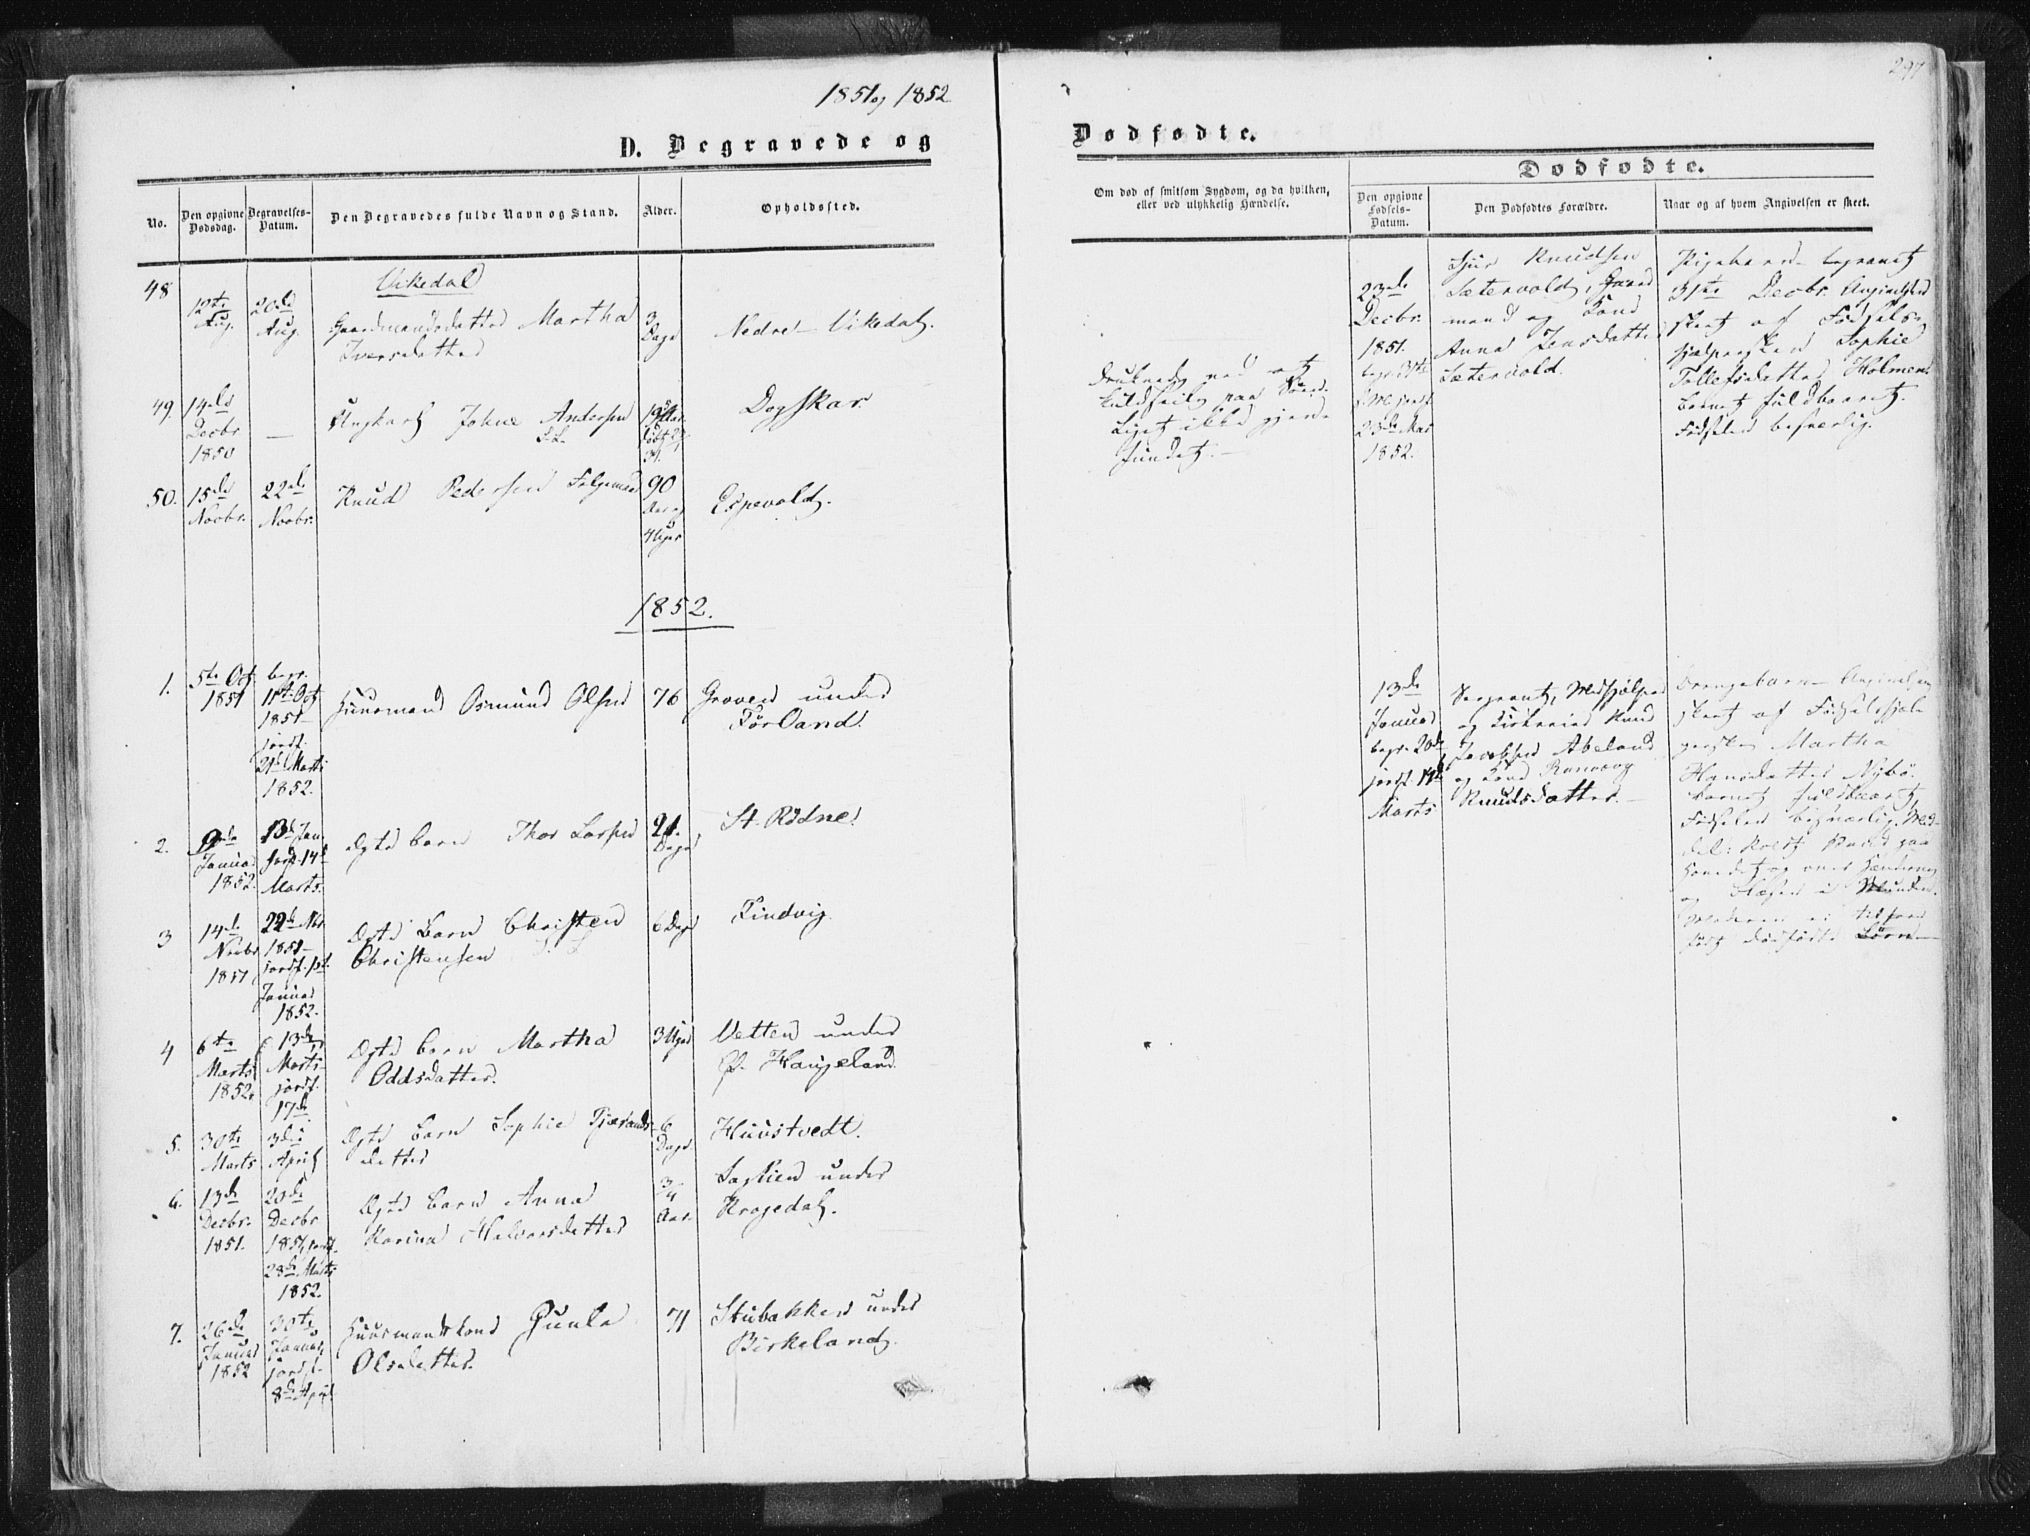 1851 og 1852
D. Begravede og
No.
Den opgivne Dødsdag.
Begravelses-Datum.
Den Begravedes fulde Navn og Stand.
Alder.
Opholdssted.
Vikedal
48
12te Aug.
20de Aug.
Gaardmandsdatter Martha
Iversdatter
3 Dage
Nedre Vikedal.
49.
14de
Decbr
1850
—
Ungkarl Johne Andersen
Dogskar.
50.
15de
Novbr.
22de
Novbr.
Knud Pedersen
90
Espevold.
1852.
1.
5te Oct.
1851
begr.
11te Oct
1851
jordf.
21de Marts
1852.
Huusmand Osmund Olsen
76
Groven under
Førland.
2.
9de
Januar
1852.
13de Jan.
jordf. 14de
Marts.
Ægte Barn Thor Larsen
21.
Dage
St. Rødne.
3
14de
Novbr
1851
22de Nov.
1851
jordf. 1ste
Januar
1852.
Ægte Barn Christen
Christensen
6 Dage
Tindvig.
4
6te
Marts
1852.
13de
Marts
jordf.
17de
Ægte Barn Martha
Oddsdatter.
3 Uger
Vetten under
Ø. Haugeland.
5.
30te
Marts
3die
April
Ægte Barn Sophie Tjerands-
datter
6
Dage
Huustvedt.
6.
13de
Decbr.
1851.
20de
Decbr
1851, jordf.
28de Marts
1852.
Ægte Barn Anna
Karina Halvorsdatter
3/4
Aar.
under
Kragedal.
7.
26de
Januar
1852
30te
Januar,
jordf.
8de April
Huusmandskone Gunla
Olsdatter.
71
Stubakken under
Birkeland.
297
Dødfødte.
Om død af smitsom Sygdom, og da hvilken,
eller ved ulykkelig Hændelse.
Dødfødte.
Den opgivne
Fødsels-
Datum.
Den Dødfødtes Forældre.
Naar og af hvem Angivelsen er skeet.
Druknede ved at
kuldseile paa
Liget ikke
fundet. —
23de
Decbr.
1851.
begr. 31te
jordf.
23de Mar
1852.
Sjur Knudsen
Sætervold, Gaard
mand og Kone
Anna Jonsdatter
Sætervold.
Pigebarn begravet
31te Decbr. Angivelsen
skeet af Fødsels-
hjælpersken Sophie
Tollefsdatter Holmen.
Barnet fuldbaaret.
Fødselen besværlig.
13de
Januar
begr. 20de
jordf. 14de
Marts
Sergeant, Medhjælper
og Knud
Jacobsen Abeland
og Kone Ranveig
Knudsdatter. —
Drengebarn Angivelsen
skeet af Fødselshjæl-
persken Martha
Hansdatter Nybø.
Barnet fuldbaaret
Fødselen besværlig. Mid-
del: koldt Vand paa
Hovedet og over
og i Munden.
Moderen ei tilforn
født dødfødte Børn —